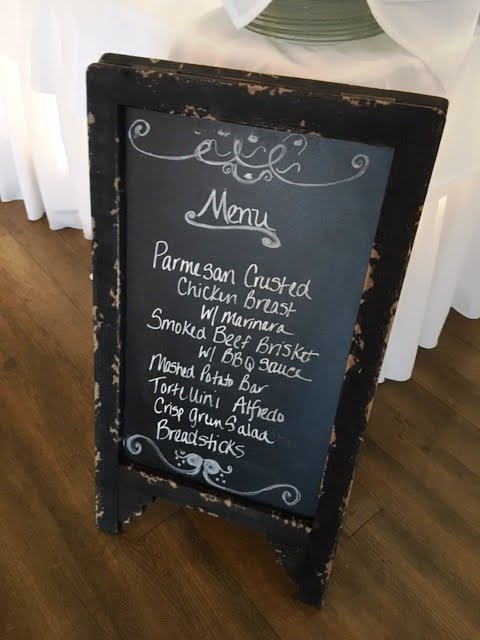 Menu
Parmesan Crusted
Chicken Breast
W/ Marinara
Smoked Beef Brisket
W/ BBQ Sauce
Mashed Potato Bar
Tortellini Alfredo
Crisp Green Salad
Breadsticks